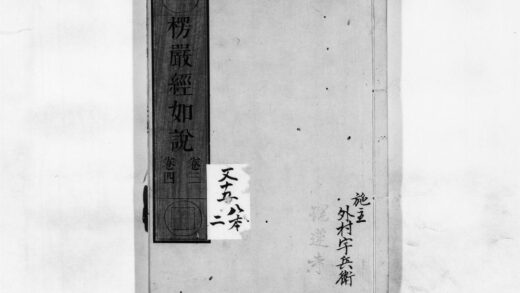 楞嚴經如說
卷三
卷四
又十五
八本
二
施主
外村宇兵衛